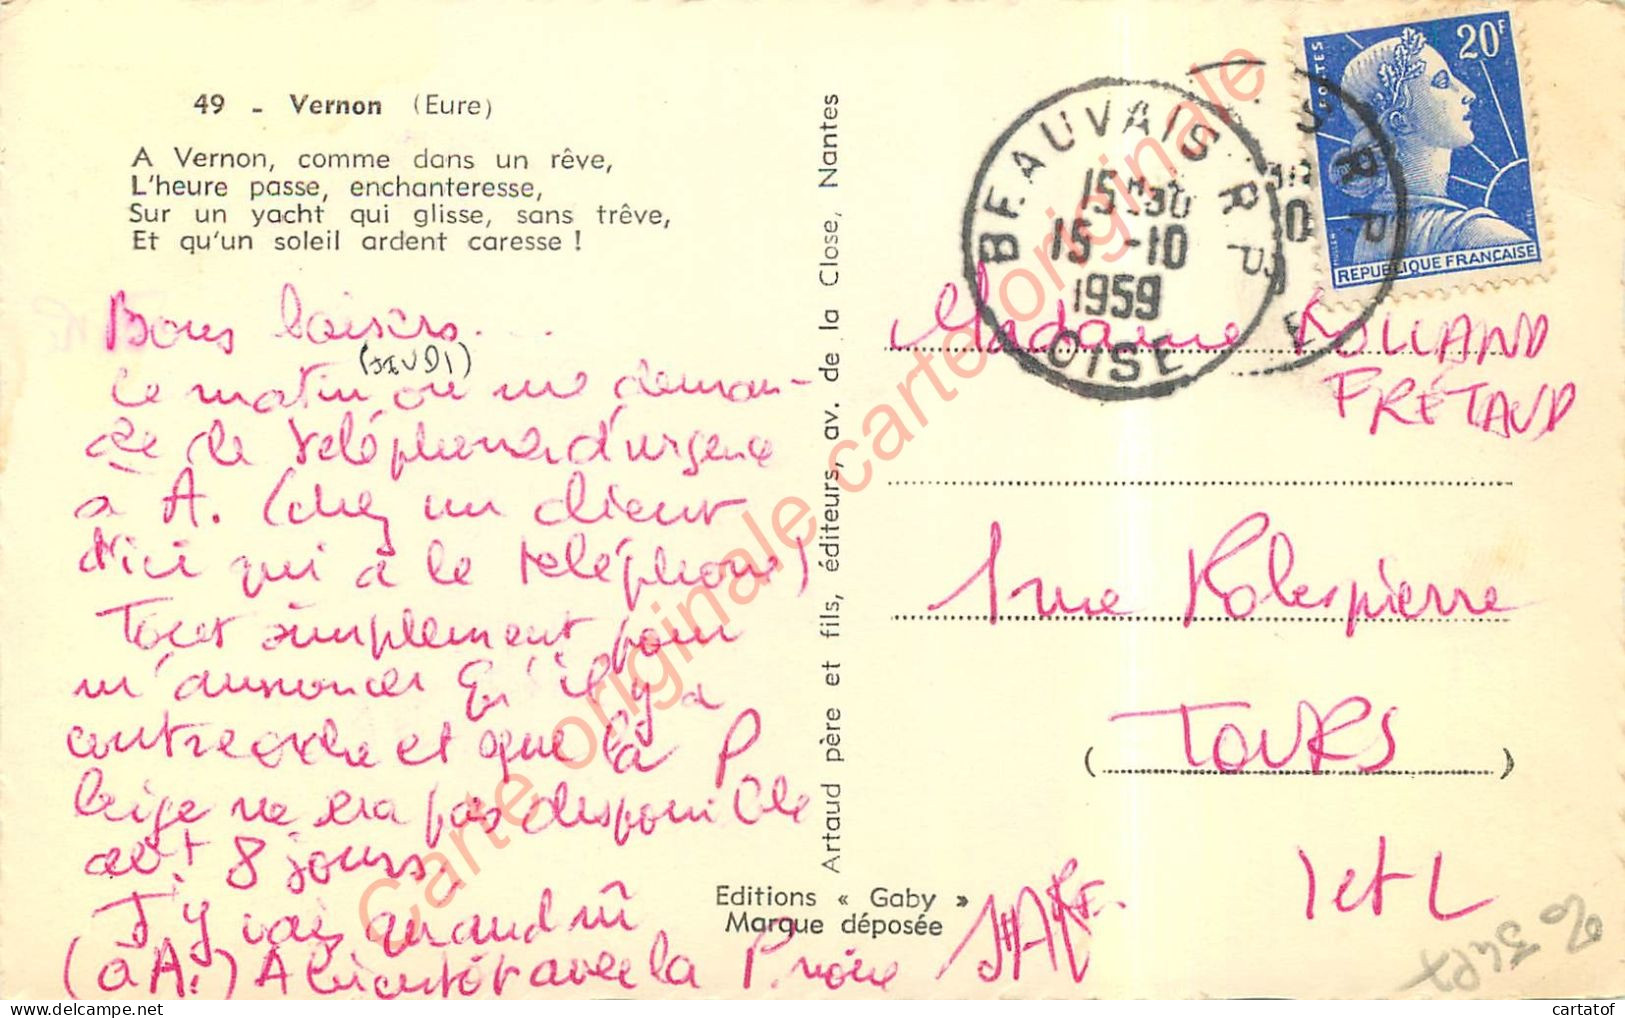 49 - Vernon (Eure)
A Vernon, comme dans un rêve,
L'heure passe, enchanteresse,
Sur un yacht qui glisse, sans trêve,
Et qu'un soleil ardent caresse !
Bons baisers...
(JEUDI)
Ce matin on me deman-
de de téléphoner d'urgence
à A. (chez un client
d'ici qui a le téléphone)
Tout simplement pour
m'annoncer qu'il y a
contreordre et que la P.
beige ne sera pas disponible
avt 8 jours.
J'y vais quand m̄
(à A.) A bientôt avec la P. noire
Artaud père et fils, éditeurs, av. de la Close, Nantes
Editions « Gaby »
Marque déposée
BEAUVAIS R.P.
15H30
15 -10
1959
OISE
20F
POSTES
REPUBLIQUE FRANÇAISE
Madame ROLLAND
FRETAUD
1 rue Robespierre
(TOURS)
I et L
Carte originale carte originale carte originale
cartatof